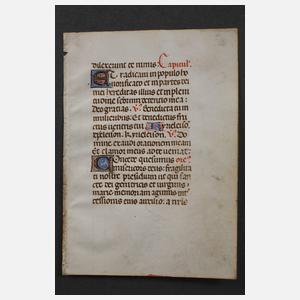 dilexerunt te nimis. Capitulū.
Et radicavi in populo ho
norificato et in partes dei
mei hereditas illius et in plen
tudine sctorum detentio mea:
deo gratias. V. Benedicta tu in
mulieribus. Et benedictus fruc
tus ventris tui. Kyrieleison.
xpeleison. Kyrieleison. V. Do
mine exaudi orationem meam
Et clamor meus ad te veniat: or̄o.
Concede quesumus
misericors deus: fragilita
ti nostre presidium ut qui sanc
te dei genitricis et virginis
marie memoriam agimus in
cessionis eius auxilio: a n̄ris